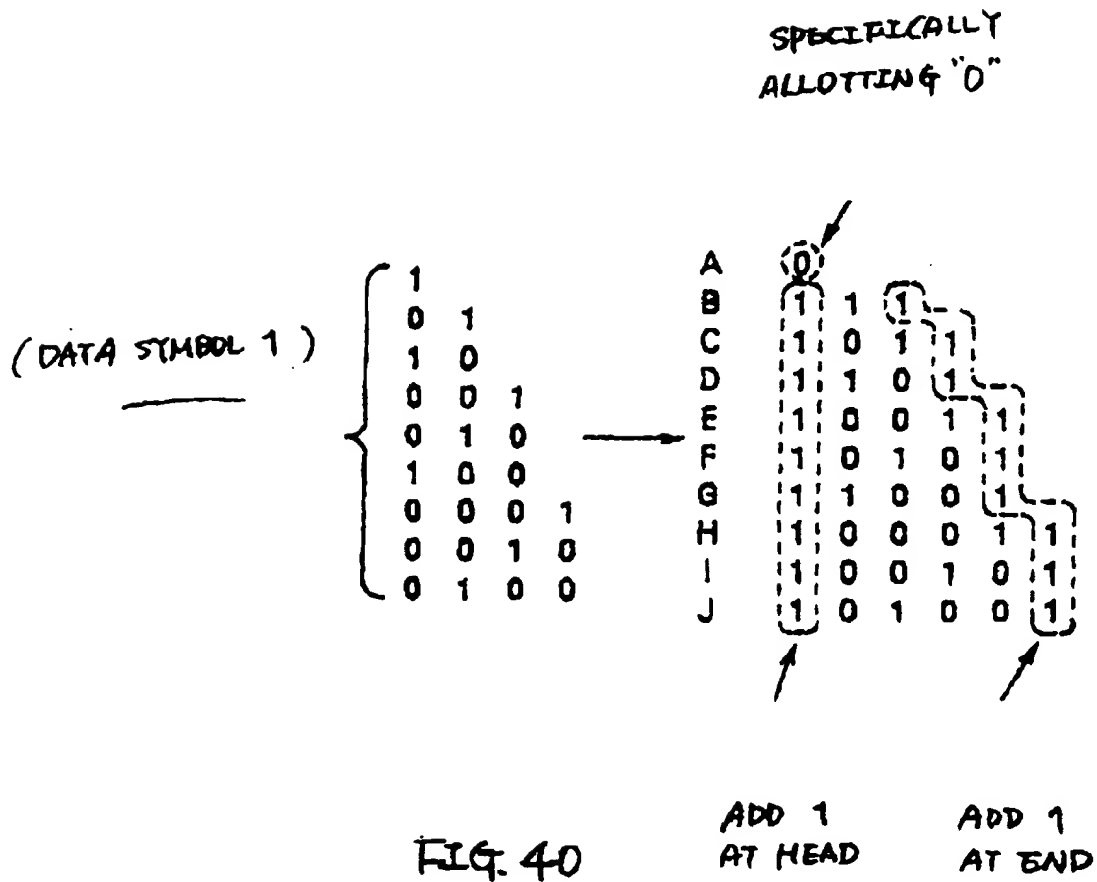 SPECIFICALLY
ALLOTTING "0"
(DATA SYMBOL 1)
1
0 1
1 0
0 0 1
0 1 0
1 0 0
0 0 0 1
0 0 1 0
0 1 0 0
A 0
B 1 1 1
C 1 0 1 1
D 1 1 0 1
E 1 0 0 1 1
F 1 0 1 0 1
G 1 1 0 0 1
H 1 0 0 0 1 1
I 1 0 0 1 0 1
J 1 0 1 0 0 1
ADD 1
AT HEAD
ADD 1
AT END
FIG. 40